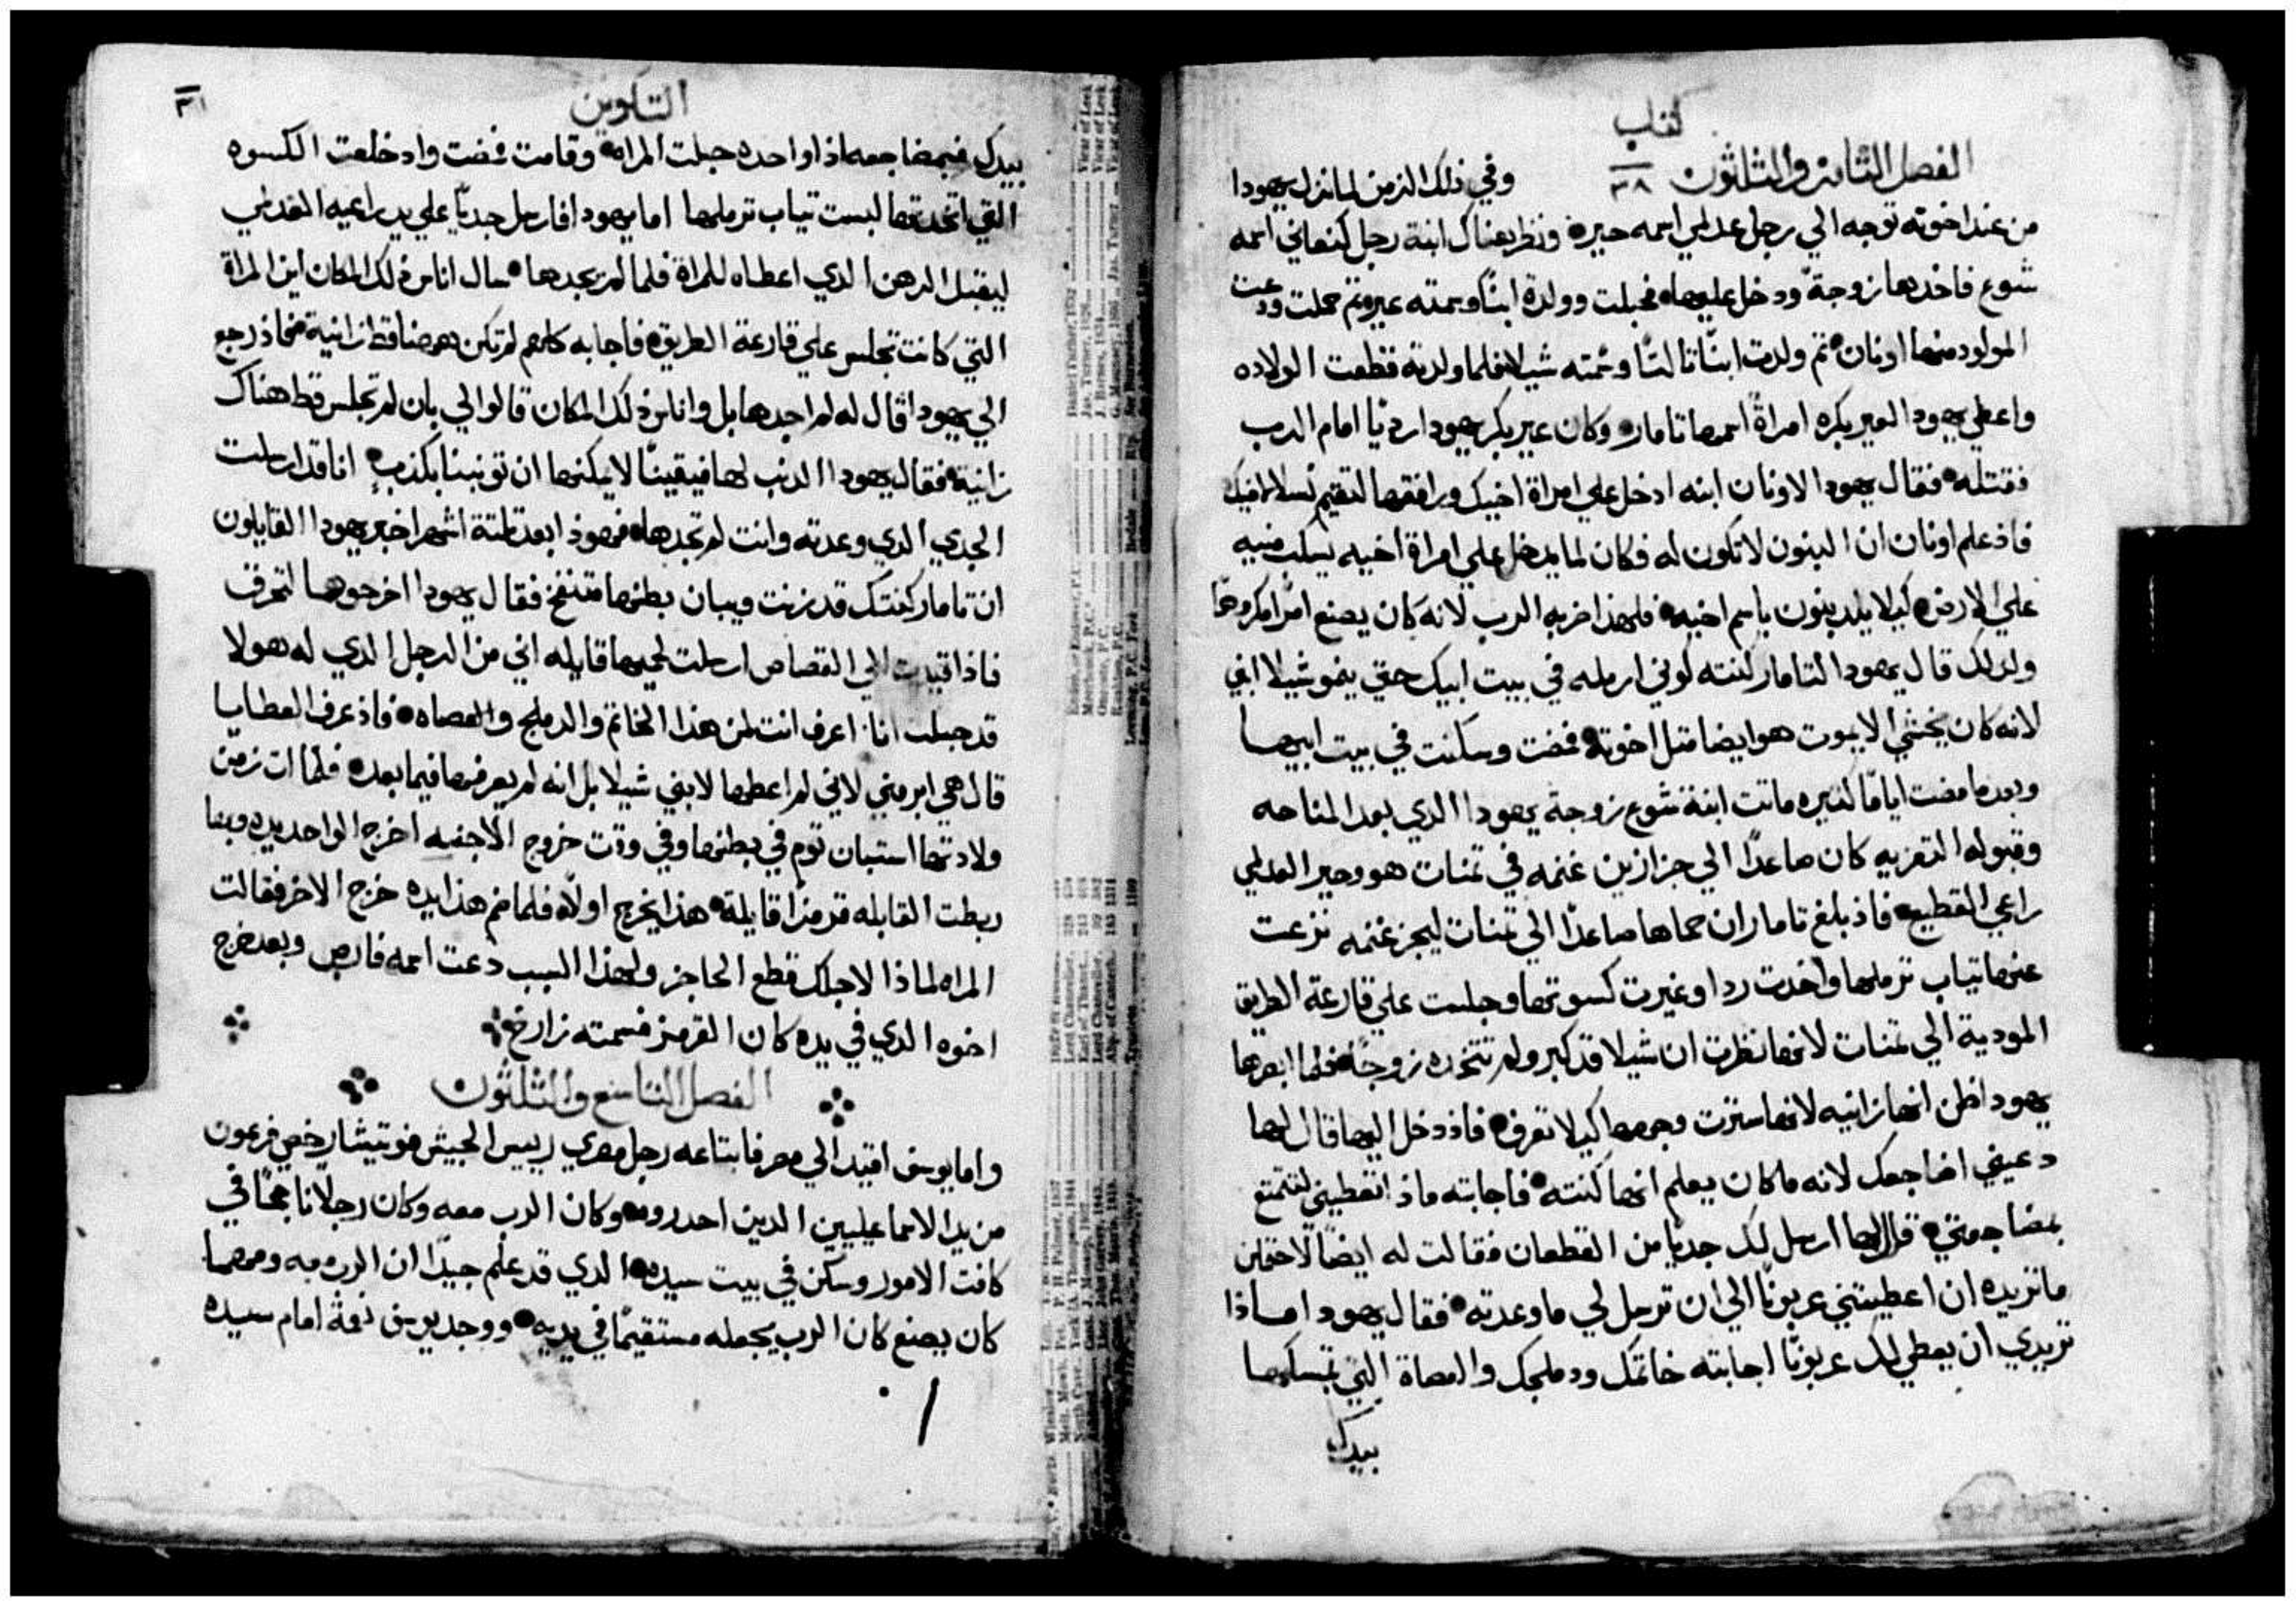 كتاب
الفصل الثامن والثلثون ٣٨ وفي ذلك الزمن لما نزل يهودا
من عند اخوته توجه الي رجل عدلمي اسمه حيره ونظر هناك ابنة رجل كنعاني اسمه
شوع فاخدها زوجة ودخل عليها فحبلت وولدة ابنًا وسمته عير وتم حملت ودعت
المولود منها اونان تم ولدت ابنًا تالتًا وسمته شيلا فلما ولدته قطعت الولاده
واعطي يهودا لعير بكره امراةً اسمها تامار وكان عير بكر يهودا رديًا امام الرب
فقتله فقال يهودا لاونان ابنه ادخل علي امراة اخيك ورافقها لتقيم نسلا لاخيك
فاذ علم اونان ان البنون لا تكون له فكان لما يدخل علي امراة اخيه يسكب منيه
علي الارض كيلا يلد بنون باسم اخيه فلهذا ضربه الرب لانه كان يصنع امرًا مكروهًا
ولدلك قال يهودا لتامار كنته كوني ارمله في بيت ابيك حتي ينمو شيلا ابني
لانه كان يخشي الا يموت هو ايضا متل اخوته فمضت وسكنت في بيت ابيها
وبعد ما مضت ايامًا كتيره ماتت ابنة شوع زوجة يهودا الدي بعد المناحه
وقبوله التعزيه كان صاعدًا الي جزازين غنمه في تمنات هو وحير العدلمي
راعي القطيع فاذ بلغ تامار ان حماها صاعدًا الي تمنات ليجز غنمه نزعت
عنها تياب ترملها واخدت ردا وغيرت كسوتها وجلست علي قارعة الطريق
المودية الي تمنات لانها نظرت ان شيلا قد كبر ولم تتخده زوجًا فلما ابصرها
يهودا ظن انها زانيه لانها سترت وجهها كيلا تعرف فاذ دخل اليها قال لها
دعيني اضاجعك لانه ما كان يعلم انها كنته فاجابته ماذا تعطيني لتتمتع
بمضاجعتي قال لها ارسل لك جديًا من القطعان فقالت له ايضًا لاحتملن
ما تريده ان اعطيتني عربونًا الي ان ترسل لي ما وعدته فقال يهودا ماذا
تريدي ان يعطي لك عربونًا اجابته خاتمك ودملجك والعصاة التي تمسكها
بيدك
التكوين
٣١
بيدك فبمضاجعه اذا واحده حبلت المراه وقامت فمضت واد خلعت الكسوه
التي اتخدتها لبست تياب ترملها اما يهودا فارسل جديًا علي يد راعيه العدلمي
ليقبل الرهن الدي اعطاه للمراة فلما لم يجدها سال اناس دلك المكان اين المراة
التي كانت تجلس علي قارعة الطريق فاجابه كلهم لم تكن ههنا قط زانية فحاذ رجع
الي يهودا قال له لم اجدها بل واناس دلك المكان قالوا لي بان لم تجلس قط هناك
زانية فقال يهودا الدنب لها فيقينًا لا يمكنها ان تونبنا بكذب انا قد ارسلت
الجدي الدي وعدته وانت لم تجدها فهوذا بعد تلتة اشهر اخبر يهودا القايلون
ان تامار كنتك قد زنت ويبان بطنها منتفخ فقال يهودا اخرجوها لتحرق
فاذا قيدت الي القصاص ارسلت لحميها قايله اني من الرجل الدي له هولا
قد حبلت انا اعرف انت لمن هذا الخاتم والدملج والعصاه فاذ عرف العطايا
قال هي ابر مني لاني لم اعطها لابني شيلا بل انه لم يعرفها فيما بعده فلما ان زمن
ولادتها استبان توم في بطنها وفي وقت خروج الاجنه اخرج الواحد يده وبها
ربطت القابله قرمزًا قايلة هذا يخرج اولًا فلما ضم هذا يده خرج الاخر فقالت
المراه لماذا لاجلك قطع الحاجز ولهذا السبب دعت اسمه فارص وبعد خرج
اخوه الدي في يده كان القرمز فسمته زارخ
الفصل التاسع والثلثون
واما يوسف اقتيد الي مصر فابتاعه رجل مصري رييس الجيش فوتيشار خصي فرعون
من يد الاسماعيليين الدين احدروه وكان الرب معه وكان رجلًا ناجحًا في
كافت الامور وسكن في بيت سيده الدي قد علم جيدًا ان الرب معه ومهما
كان يصنع كان الرب يجعله مستقيمًا في يديه ووجد يوسف نعمة امام سيده